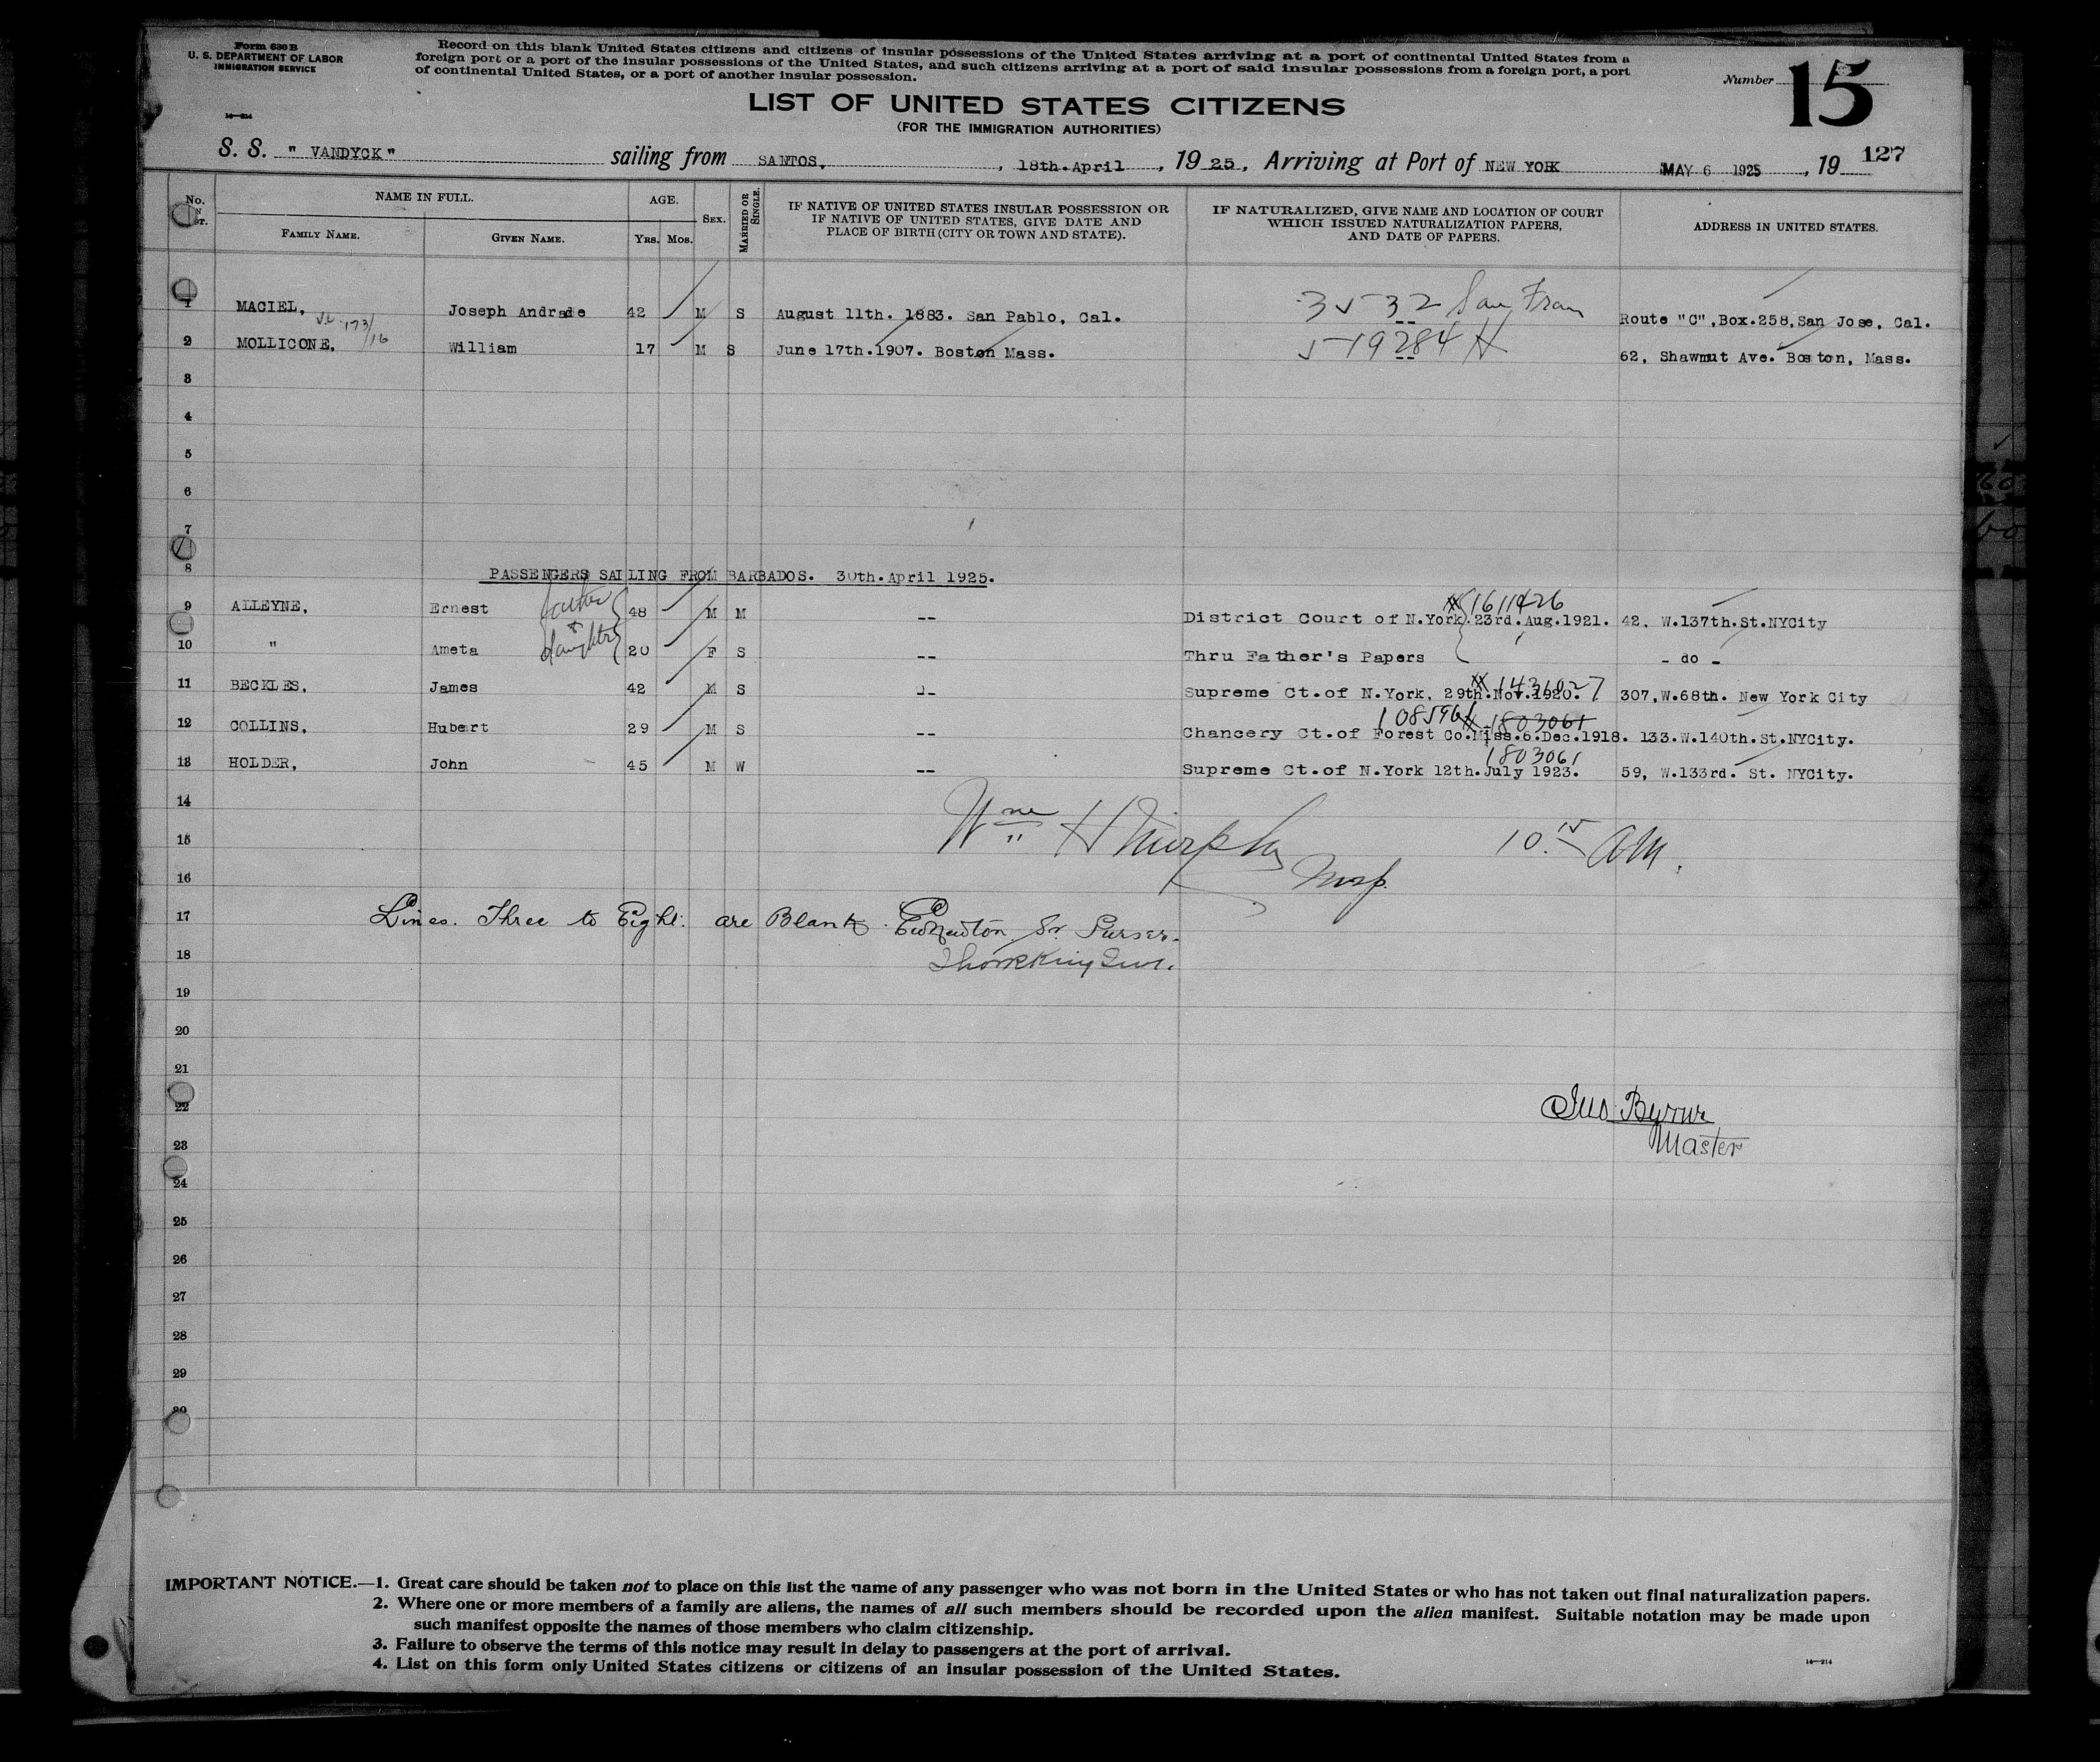 Form 630 B
U. S. DEPARTMENT OF LABOR
IMMIGRATION SERVICE
Record on this blank United States citizens and citizens of insular possessions of the United States arriving at a port of continental United States from a
foreign port or a port of the insular possessions of the United States, and such citizens arriving at a port of said insular possessions from a foreign port, a port
of continental United States, or a port of another insular possession.
Number 15
14—214
LIST OF UNITED STATES CITIZENS
(FOR THE IMMIGRATION AUTHORITIES)
127
S. S. "VANDYCK" sailing from SANTOS, 18th.April, 1925, Arriving at Port of NEW YORK MAY 6 1925, 19
No. IN LIST. NAME IN FULL. AGE. SEX. MARRIED OR SINGLE. IF NATIVE OF UNITED STATES INSULAR POSSESSION OR IF NATIVE OF UNITED STATES, GIVE DATE AND PLACE OF BIRTH (CITY OR TOWN AND STATE). IF NATURALIZED, GIVE NAME AND LOCATION OF COURT WHICH ISSUED NATURALIZATION PAPERS, AND DATE OF PAPERS. ADDRESS IN UNITED STATES.
FAMILY NAME. GIVEN NAME. YRS. MOS.
1 MACIEL, Joseph Andrade 42 M S August 11th. 1883. San Pablo, Cal. 3532 San Fran -- Route "C",Box.258,San Jose, Cal.
173/16
2 MOLLICONE, William 17 M S June 17th.1907. Boston Mass. 519284 -- 62, Shawmut Ave. Boston, Mass.
3
4
5
6
7
8 PASSENGERS SAILING FROM BARBADOS. 30th.April 1925.
1611426
9 ALLEYNE, Ernest father 48 M M -- District Court of N.York.23rd.Aug.1921. 42, W.137th.St.NYCity
10 " Ameta + daughter 20 F S -- Thru Father's Papers - do -
1431027
11 BECKLES, James 42 M S -- Supreme Ct.of N.York, 29th.Nov.1920. 307,W.68th. New York City
1085961 1803061
12 COLLINS, Hubert 29 M S -- Chancery Ct.of Forest Co.Miss.6.Dec.1918. 133.W.140th.St.NYCity.
1803061
13 HOLDER, John 45 M W -- Supreme Ct.of N.York 12th.July 1923. 59, W.133rd. St. NYCity.
14
15 Wm H Murphy 10.15 AM.
16 Insp.
17 Lines. Three to Eight: are Blank. Sr. Purser.
18
19
20
21
22 Jno Byrne
23 Master
24
25
26
27
28
29
30
IMPORTANT NOTICE.—1. Great care should be taken not to place on this list the name of any passenger who was not born in the United States or who has not taken out final naturalization papers.
2. Where one or more members of a family are aliens, the names of all such members should be recorded upon the alien manifest. Suitable notation may be made upon
such manifest opposite the names of those members who claim citizenship.
3. Failure to observe the terms of this notice may result in delay to passengers at the port of arrival.
4. List on this form only United States citizens or citizens of an insular possession of the United States.
14—214